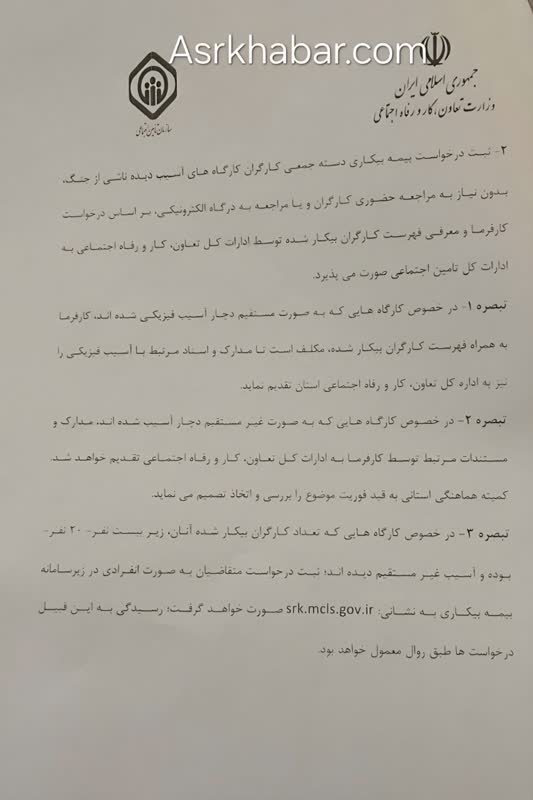 Asrkhabar.com
جمهوری اسلامی ایران
وزارت تعاون، کار و رفاه اجتماعی
سازمان تامین اجتماعی
۲- ثبت درخواست بیمه بیکاری دسته جمعی کارگران کارگاه های آسیب دیده ناشی از جنگ،
بدون نیاز به مراجعه حضوری کارگران و یا مراجعه به درگاه الکترونیکی، بر اساس درخواست
کارفرما و معرفی فهرست کارگران بیکار شده توسط ادارات کل تعاون، کار و رفاه اجتماعی به
ادارات کل تامین اجتماعی صورت می پذیرد.
تبصره ۱- در خصوص کارگاه هایی که به صورت مستقیم دچار آسیب فیزیکی شده اند، کارفرما
به همراه فهرست کارگران بیکار شده، مکلف است تا مدارک و اسناد مرتبط با آسیب فیزیکی را
نیز به اداره کل تعاون، کار و رفاه اجتماعی استان تقدیم نماید.
تبصره ۲- در خصوص کارگاه هایی که به صورت غیر مستقیم دچار آسیب شده اند، مدارک و
مستندات مرتبط توسط کارفرما به ادارات کل تعاون، کار و رفاه اجتماعی تقدیم خواهد شد.
کمیته هماهنگی استانی به قید فوریت موضوع را بررسی و اتخاذ تصمیم می نماید.
تبصره ۳- در خصوص کارگاه هایی که تعداد کارگران بیکار شده آنان، زیر بیست نفر- ۲۰ نفر-
بوده و آسیب غیر مستقیم دیده اند؛ ثبت درخواست متقاضیان به صورت انفرادی در زیرسامانه
بیمه بیکاری به نشانی: srk.mcls.gov.ir صورت خواهد گرفت؛ رسیدگی به این قبیل
درخواست ها طبق روال معمول خواهد بود.